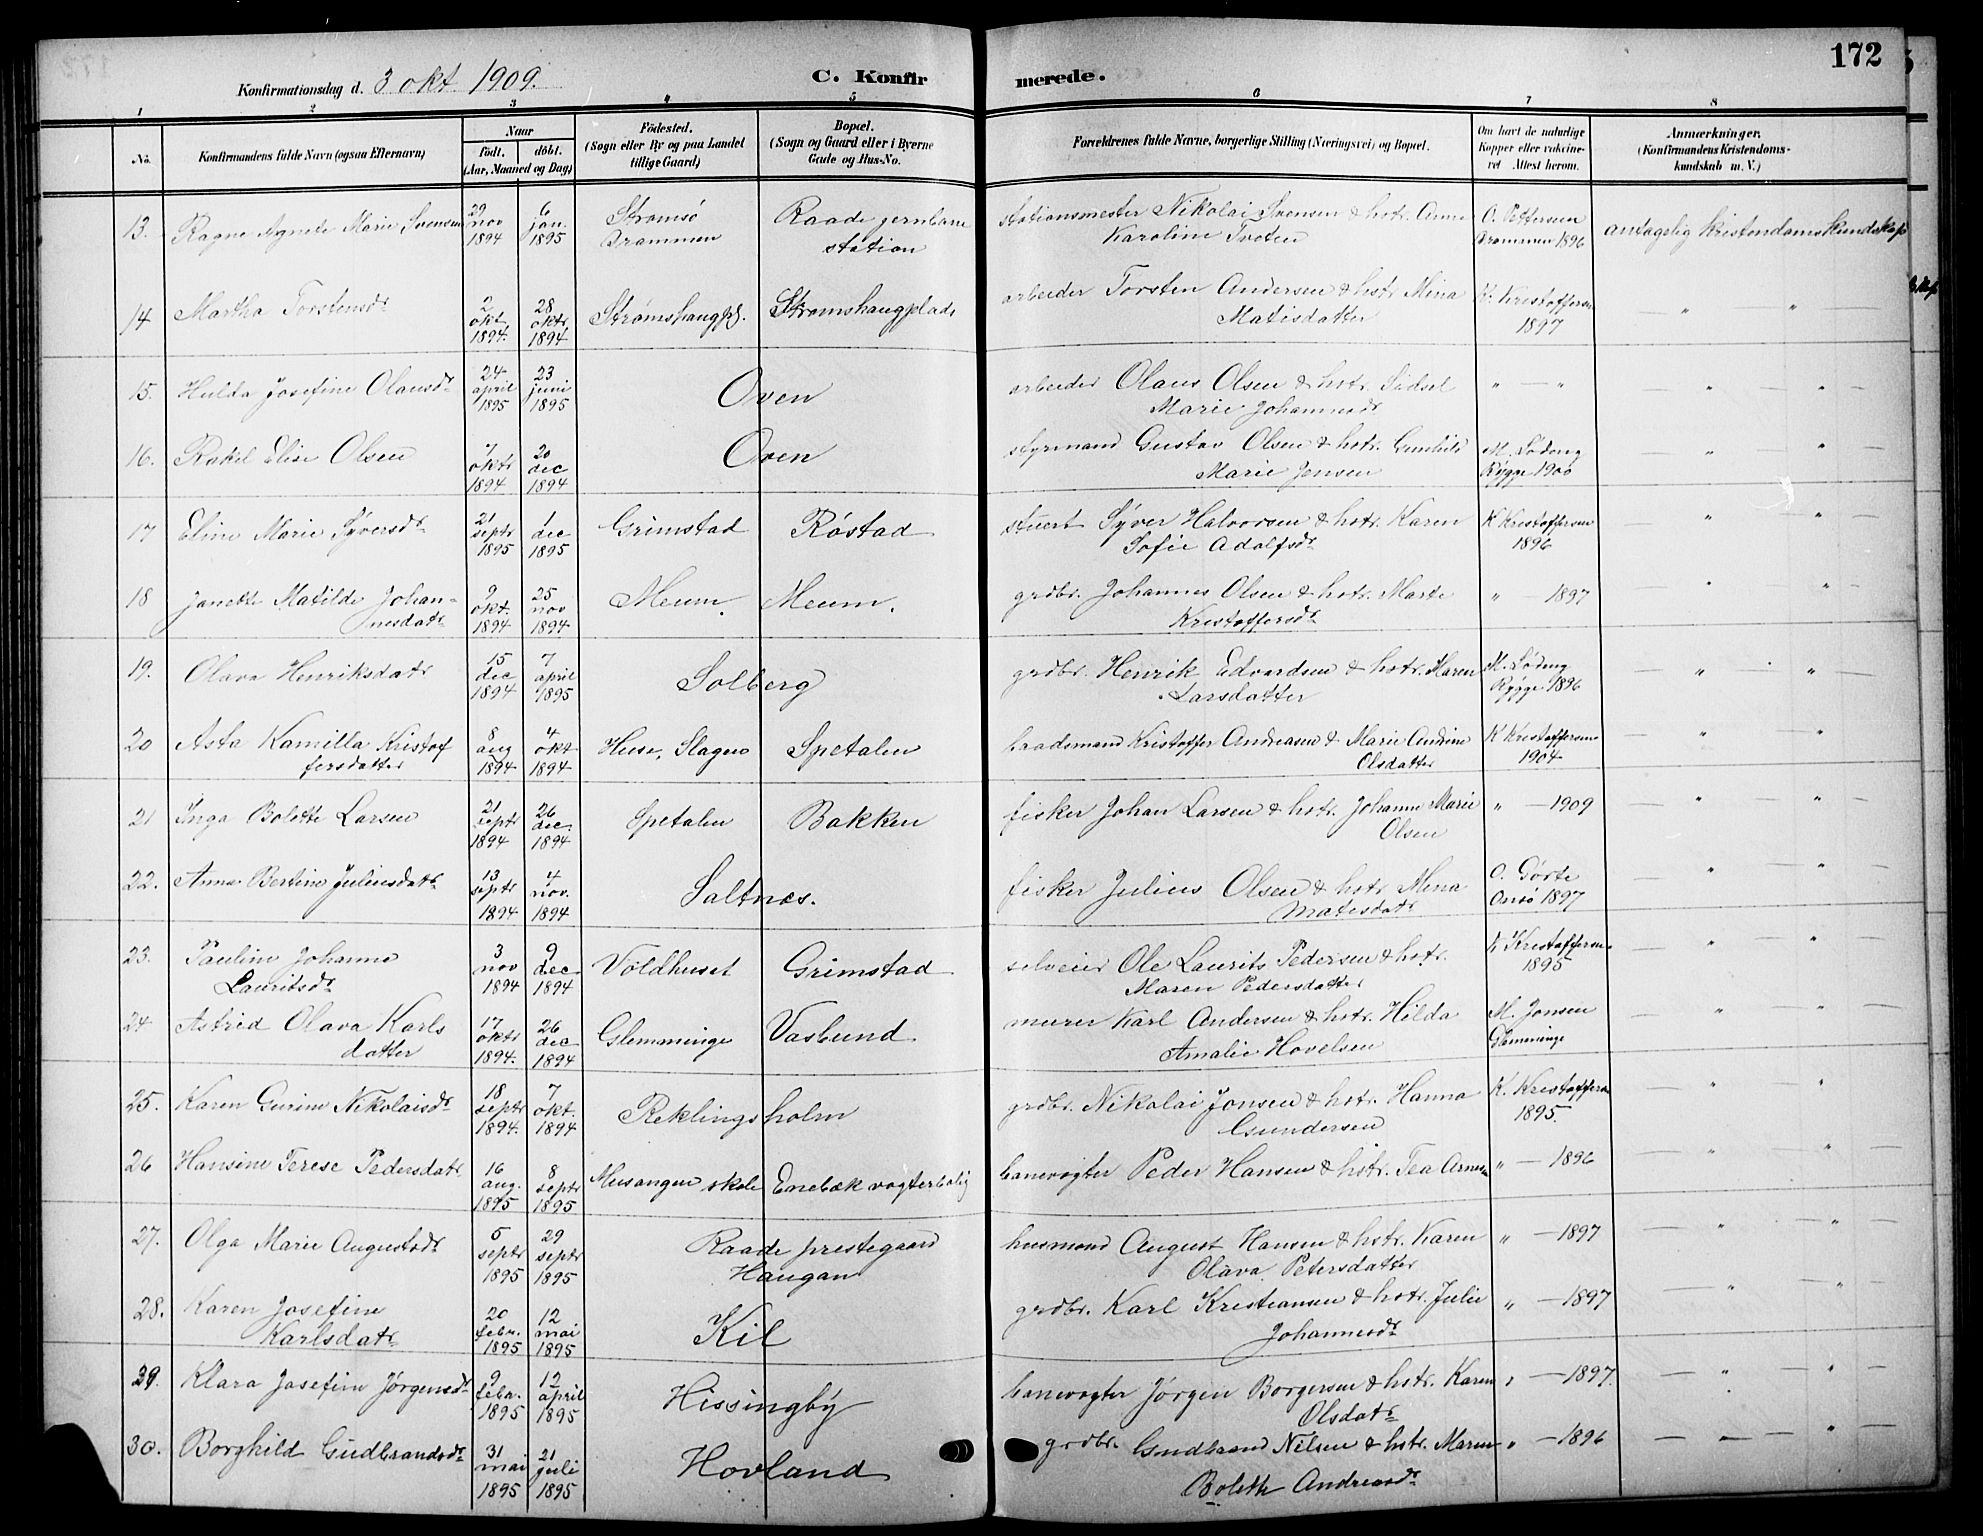 172
Konfirmationsdag d. 3 okt. 1909.
C. Konfirmerede.
1 2 3 4 5 6 7 8
No.
Konfirmandens fulde Navn (ogsaa Efternavn)
Naar
født. døbt.
(Aar, Maaned og Dag)
Födested.
(Sogn eller By og paa Landet
tillige Gaard)
Bopæl.
(Sogn og Gaard eller i Byerne
Gade og Hus-No.
Forældrenes fulde Navne, borgerlige Stilling (Næringsvei) og Bopæl.
Om havt de naturlige
Kopper eller vakcine-
ret Attest herom.
Anmærkninger.
(Konfirmandens Kristendoms-
kundskab m. V.)
13. Ragne Agnete Marie Svensen 29 nov 1894 6 jan. 1895 Strømsø Drammen Raade jernbane station stationsmester Nikolai Svensen & hstr. Anne Karoline Tvoten O. Pettersen Drammen 1896 antagelig kristendomskundskap
14 Martha Torstensdr 2 okt 1894. 28 oktr 1894 Strømshaugpl. Strømshaugplads arbeider Torsten Andersen & hstr Mina Matisdatter K. Kristoffersen 1897 — " — " —
15. Hulda Josefine Olausdr 24 april 1895 23 juni 1895 Oven arbeider Olaus Olsen & hstr. Sidsel Marie Johannesdr " — " — " — " —
16. Rakel Elise Olsen 7 oktr 1894 20 dec 1894 Oven styrmand Gustav Olsen & hstr. Gunhild Marie Jensen M. Lødeng Rygge 1900 — " — " —
17 Eline Marie Syversdr 21 septr 1895 1 dec 1895 Grimstad Røstad stuert Syver Halvorsen & hstr. Karen Sofie Adolfsdr K Kristoffersen 1896 — " — " —
18 Janette Matilde Johannesdatr 9 okt. 1894 25 nov 1894 Meum. Meum. grdbr. Johannes Olsen & hstr. Marte Kristoffersdr " — 1897 — " — " —
19. Olava Henriksdatr 15 dec 1894 7 april 1895 Solberg grdbr. Henrik Edvardsen & hstr. Maren Larsdatter M. Lødeng Rygge 1896 — " — " —
20 Asta Kamilla Kristoffersdatter 8 aug 1894 4 okt 1894 Huse, Slagen Spetalen baadsmand Kristoffer Andreasen & Marie Andrine Olsdatter K Kristoffersen 1904 — " — " —
21 Inga Bolette Larsen 21 septr 1894 26 dec. 1894 Spetalen Bakken fisker Johan Larsen & hstr. Johanne Marie Olsen " — 1909 — " — " —
22. Anna Bertine Juliusdatr 13 septr 1894 4 nov. 1894 Saltnes. fisker Julius Olsen & hstr. Mina Matisdatr O. Gørte Onsø 1897 — " — " —
23. Pauline Johanne Lauritsdr 3 nov 1894 9 dec 1894 Voldhuset Grimstad selveier Ole Laurits Pedersen & hstr. Maren Pedersdatter K Kristoffersen 1895 — " — " —
24 Astrid Olava Karlsdatter 17 oktr 1894. 26 dec 1894 Glemminge Vasbund murer Karl Andersen & hstr. Hilda Amalie Hovelsen M. Jonsen Glemminge — " — " —
25. Karen Gurine Nikolaisdr 18 septr 1894. 7 okt. 1894 Reklingsholm grdbr. Nikolai Jonsen & hstr. Hanna Gundersen K. Kristoffersen 1895. — " — " —
26 Hansine Terese Pedersdatr 16 aug. 1895 8 septr 1895 Musangen skole Enebæk vogterbolig banevogter Peder Hansen & hstr. Tea Arnesen " — 1896 — " — " —
27. Olga Marie Augustsdr 5 septr 1895 29 septr 1895 Raade prestegaard Haugan husmand August Hansen & hstr. Karen Olava Petersdatter " — 1897 — " — " —
28. Karen Josefine Karlsdatr 20 febr. 1895 12 mai 1895 Kil grdbr. Karl Kristiansen & hstr. Julie Johannesdr " — 1897 — " — " —
29. Klara Josefine Jørgensdr 9 febr. 1895 12 april 1895 Hissingby banevogter Jørgen Borgersen & hstr. Karen Olsdatr " — 1897. — " — " —
30. Borghild Gudbrandsdr 31 mai 1895 21 juli 1895 Hovland grdbr. Gudbrand Nilsen & hstr. Maren Bolette Andreasdr " — 1896 — " — " —